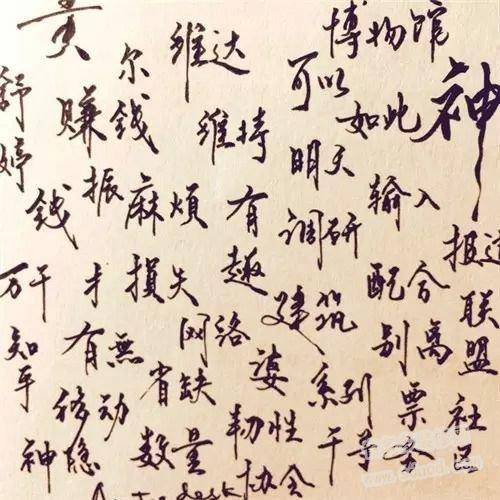 黄
尔
维达
博物馆
神
舒婷
赚钱
维持
可以
如此
钱
振
麻烦
有趣
明天
调研
输入
报道
万千
才
損失
建筑
配合
联盟
知乎
有無
网络
别离
社区
移动
省缺
婆
系列
票
神隐
数量
韧性
干事
协会